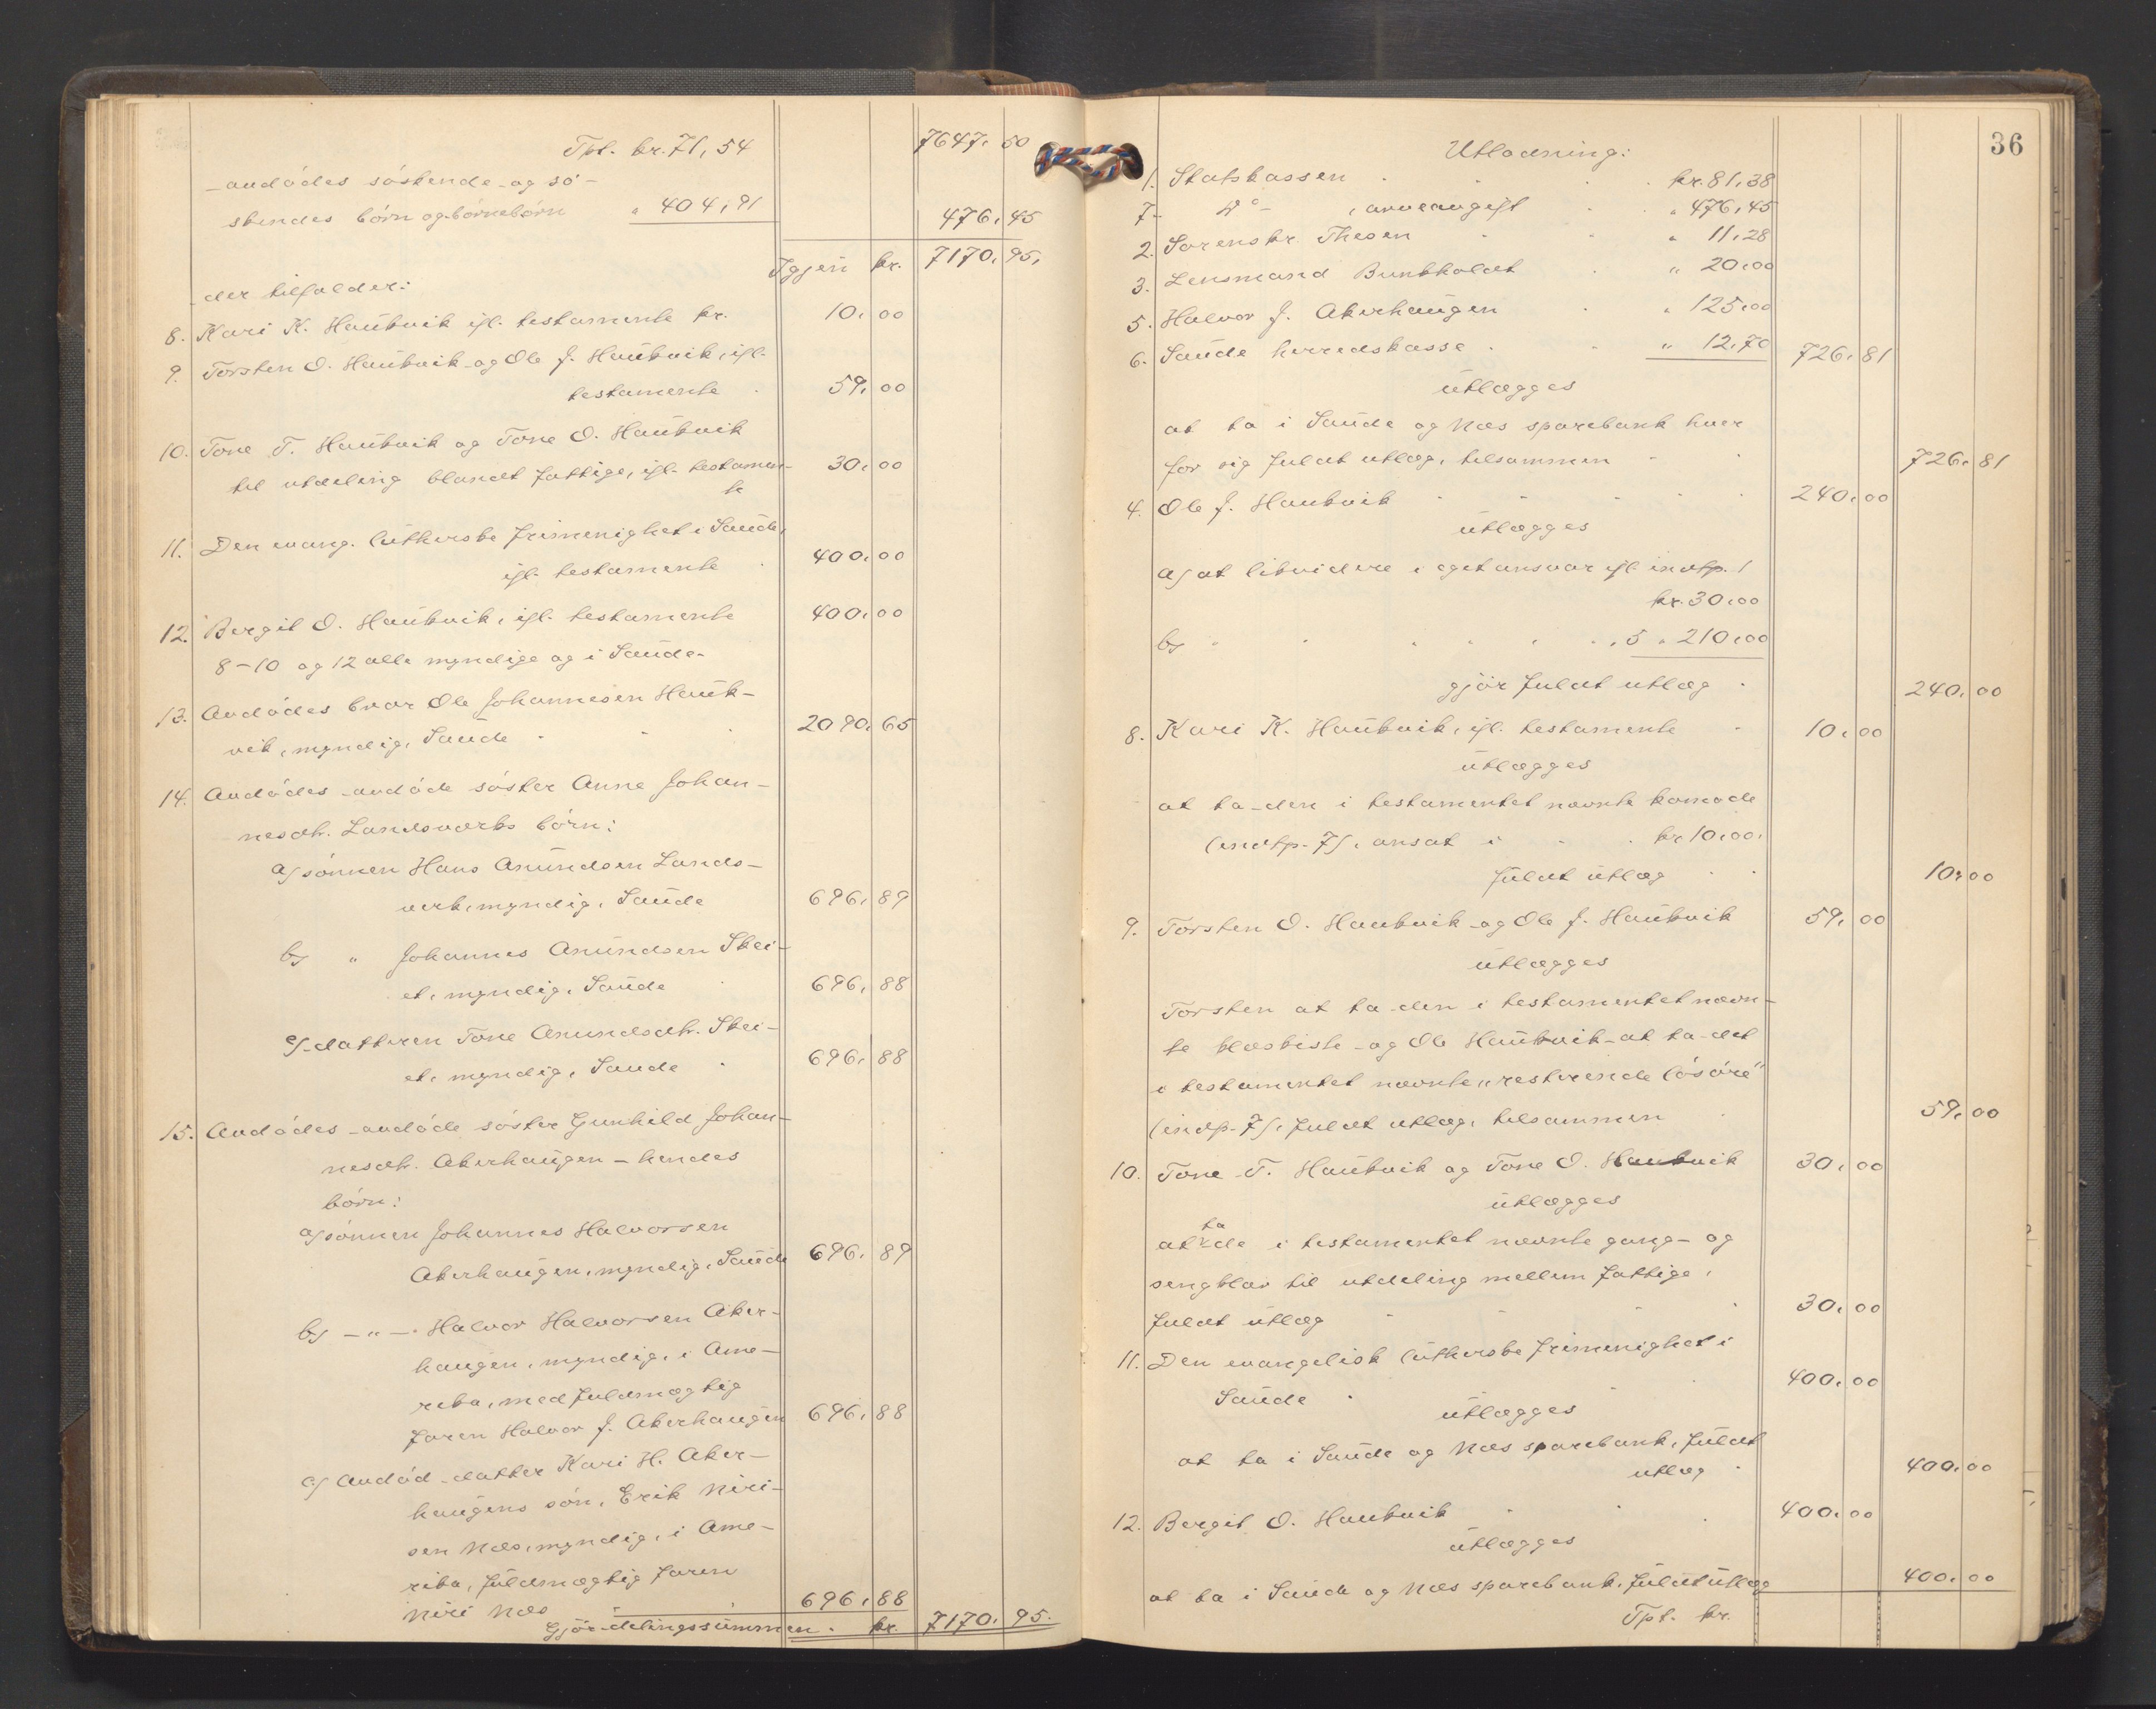 Tpt. kr. 71,54 7647,50
avdødes søskende og sø-
skendes børn og børnebørn " 404,91 476,45
Igjen kr. 7170,95.
der tilfalder:
8. Kari K. Haukvik ifl. testamente kr. 10,00
9. Torsten O. Haukvik og Ole J. Haukvik, ifl.
testamente . 59,00
10. Tone T. Haukvik og Tone O. Haukvik
til utdeling blandt fattige, ifl. testamen- 30,00
te
11. Den evang. lutherske frimenighet i Saude,
ifl. testamente . 400,00
12. Bergit O. Haukvik, ifl. testamente 400,00
8-10 og 12 alle myndige og i Saude.
13. Avdødes bror Ole Johannesen Hauk-
vik, myndig, Saude . . . 2090,65
14. Avdødes avdøde søster Anne Johan-
nesdtr. Landsverks børn:
a) sønnen Hans Anundsen Lands-
verk, myndig, Saude 696,89
b) " Johannes Anundsen Skei-
et, myndig, Saude . 696,88
c) datteren Tone Anundsdtr. Skei-
et, myndig, Saude . 696,88
15. Avdødes avdøde søster Gunhild Johan-
nesdtr. Akerhaugen - hendes
børn:
a) sønnen Johannes Halvorsen
Akerhaugen, myndig, Saude 696,89
b) - " - Halvor Halvorsen Aker-
haugen, myndig, i Ame-
rika, med fuldmægtig
faren Halvor J. Akerhaugen 696,88
c) Avdød datter Kari H. Aker-
haugens søn, Erik Niri-
sen Næs, myndig, i Ame-
rika, fuldmægtig faren
Niri Næs . . 696,88
Gjør delingssummen . kr. 7170,95.
36
Utlodning:
1. Statskassen . . . kr. 81,38
7. Do - , arveavgift . . " 476,45
2. Sorenskr. Thesen . . " 11,28
3. Lensmand Bunkholdt . " 20,00
5. Halvor J. Akerhaugen . " 125,00
6. Saude herredskasse . . " 12,70 726,81
utlægges
at ta i Saude og Næs sparebank hver
for sig fuldt utlæg, tilsammen . . 726,81
4. Ole J. Haukvik . . . . . 240,00
utlægges
a) at likvidere i eget ansvar ifl. indtp. 1
kr. 30,00
b) " " " " " " 5 " 210,00
gjør fuldt utlæg . 240,00
8. Kari K. Haukvik, ifl. testamente . 10,00
utlægges
at ta den i testamentet nævnte komode
(indtp. 7), ansat i . . kr. 10,00.
fuldt utlæg . . 10,00
9. Torsten O. Haukvik og Ole J. Haukvik 59,00
utlægges
Torsten at ta den i testamentet nævn-
te klæskiste og Ole Haukvik at ta det
i testamentet nævnte "resterende løsøre"
(indtp. 7), fuldt utlæg, tilsammen . 59,00
10. Tone T. Haukvik og Tone O. Haukvik 30,00
utlægges
ta
at de i testamentet nævnte gang- og
sengklær til utdeling mellem fattige,
fuldt utlæg . . . . 30,00
11. Den evangelisk lutherske frimenighet i
Saude . . . 400,00
utlægges
at ta i Saude og Næs sparebank, fuldt
utlæg . 400,00
12. Bergit O. Haukvik . . . 400,00
utlægges
at ta i Saude og Næs sparebank, fuldt utlæg 400,00
Tpt. kr.